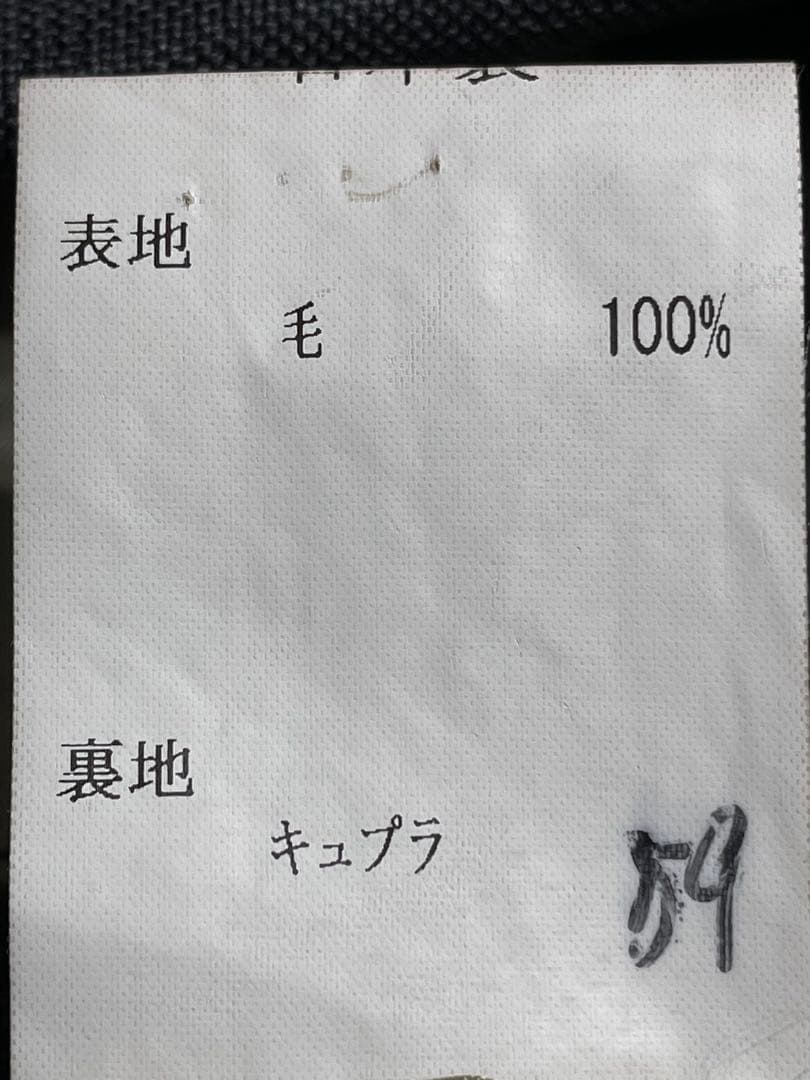 日本製
表地
毛 100%
裏地
キュプラ
59